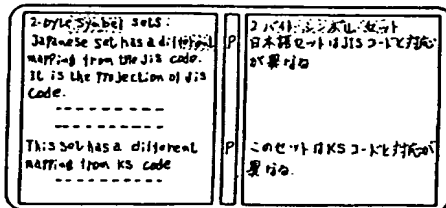 2-byte symbol sets:
Japanese set has a different
mapping from the Jis code.
It is the projection of jis
code.
This set has a different
mapping from KS code
P
P
2 バイト シンボル セット
日本語セットはJISコードと対応
が異なる
このセットはKSコードと対応が
異なる.